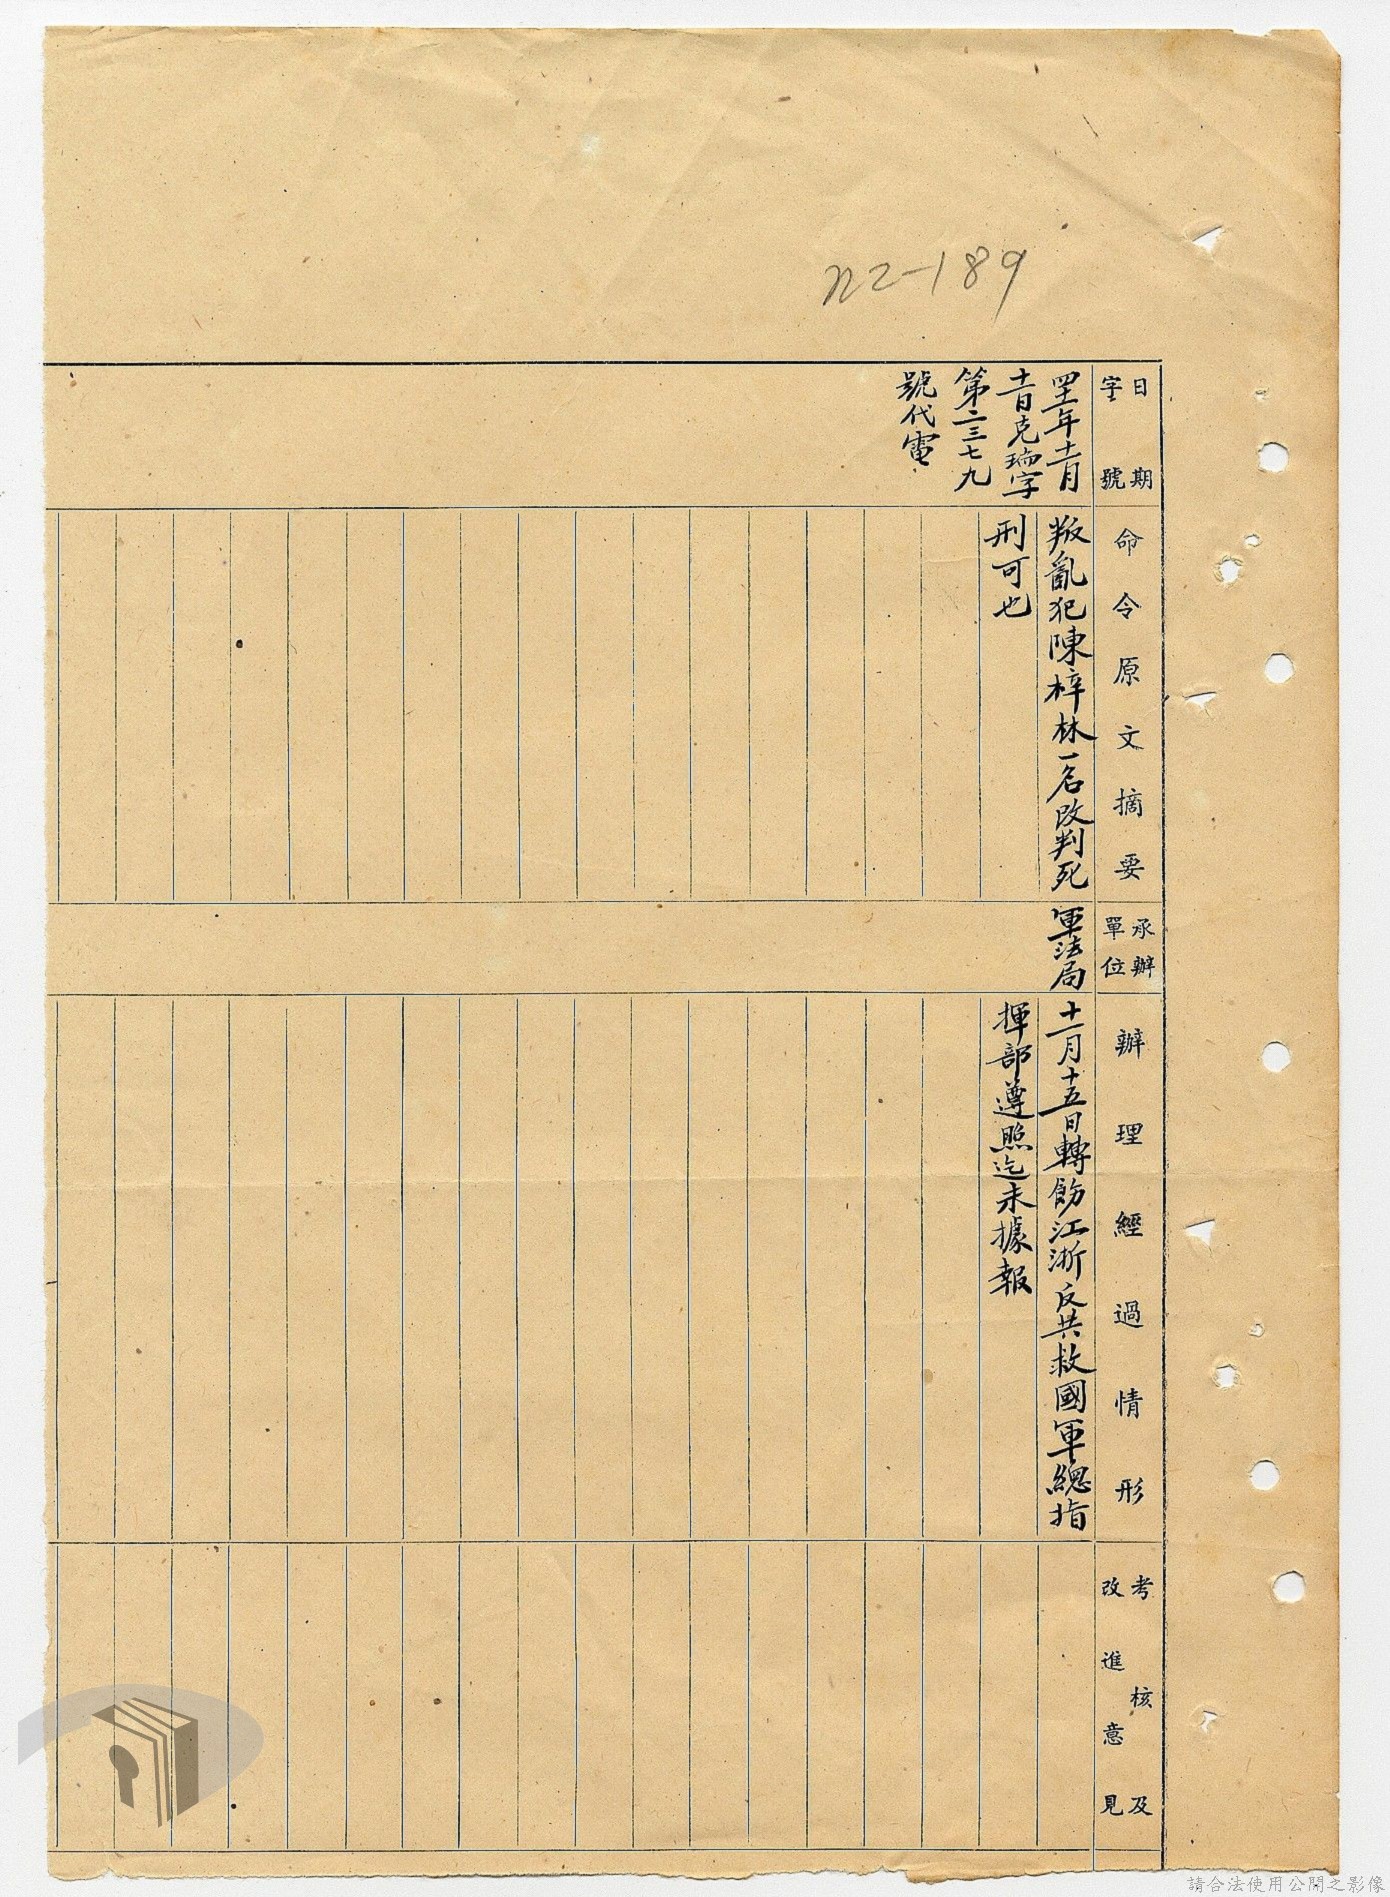 n2-189
日期
字號
命令原文摘要
承辦
單位
辦理經過情形
考核及
改進意見
四十一年十一月
十一日克瑞字
第二三七九
號代電
叛亂犯陳梓林一名改判死
刑可也
軍法局
十一月十五日轉飭江浙反共救國軍總指
揮部遵照迄未據報
請合法使用公開之影像